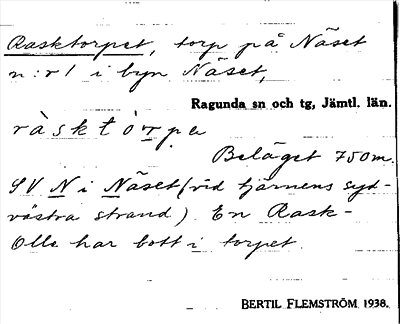 Rasktorpet, torp på Näset
n:r 1 i byn Näset,
Ragunda sn och tg, Jämtl. län.
ràsktòrpa
Beläget 750 m.
SV N i Näset (vid tjärnens syd-
västra strand). En Rask-
Olle har bott i torpet.
BERTIL FLEMSTRÖM 1938.